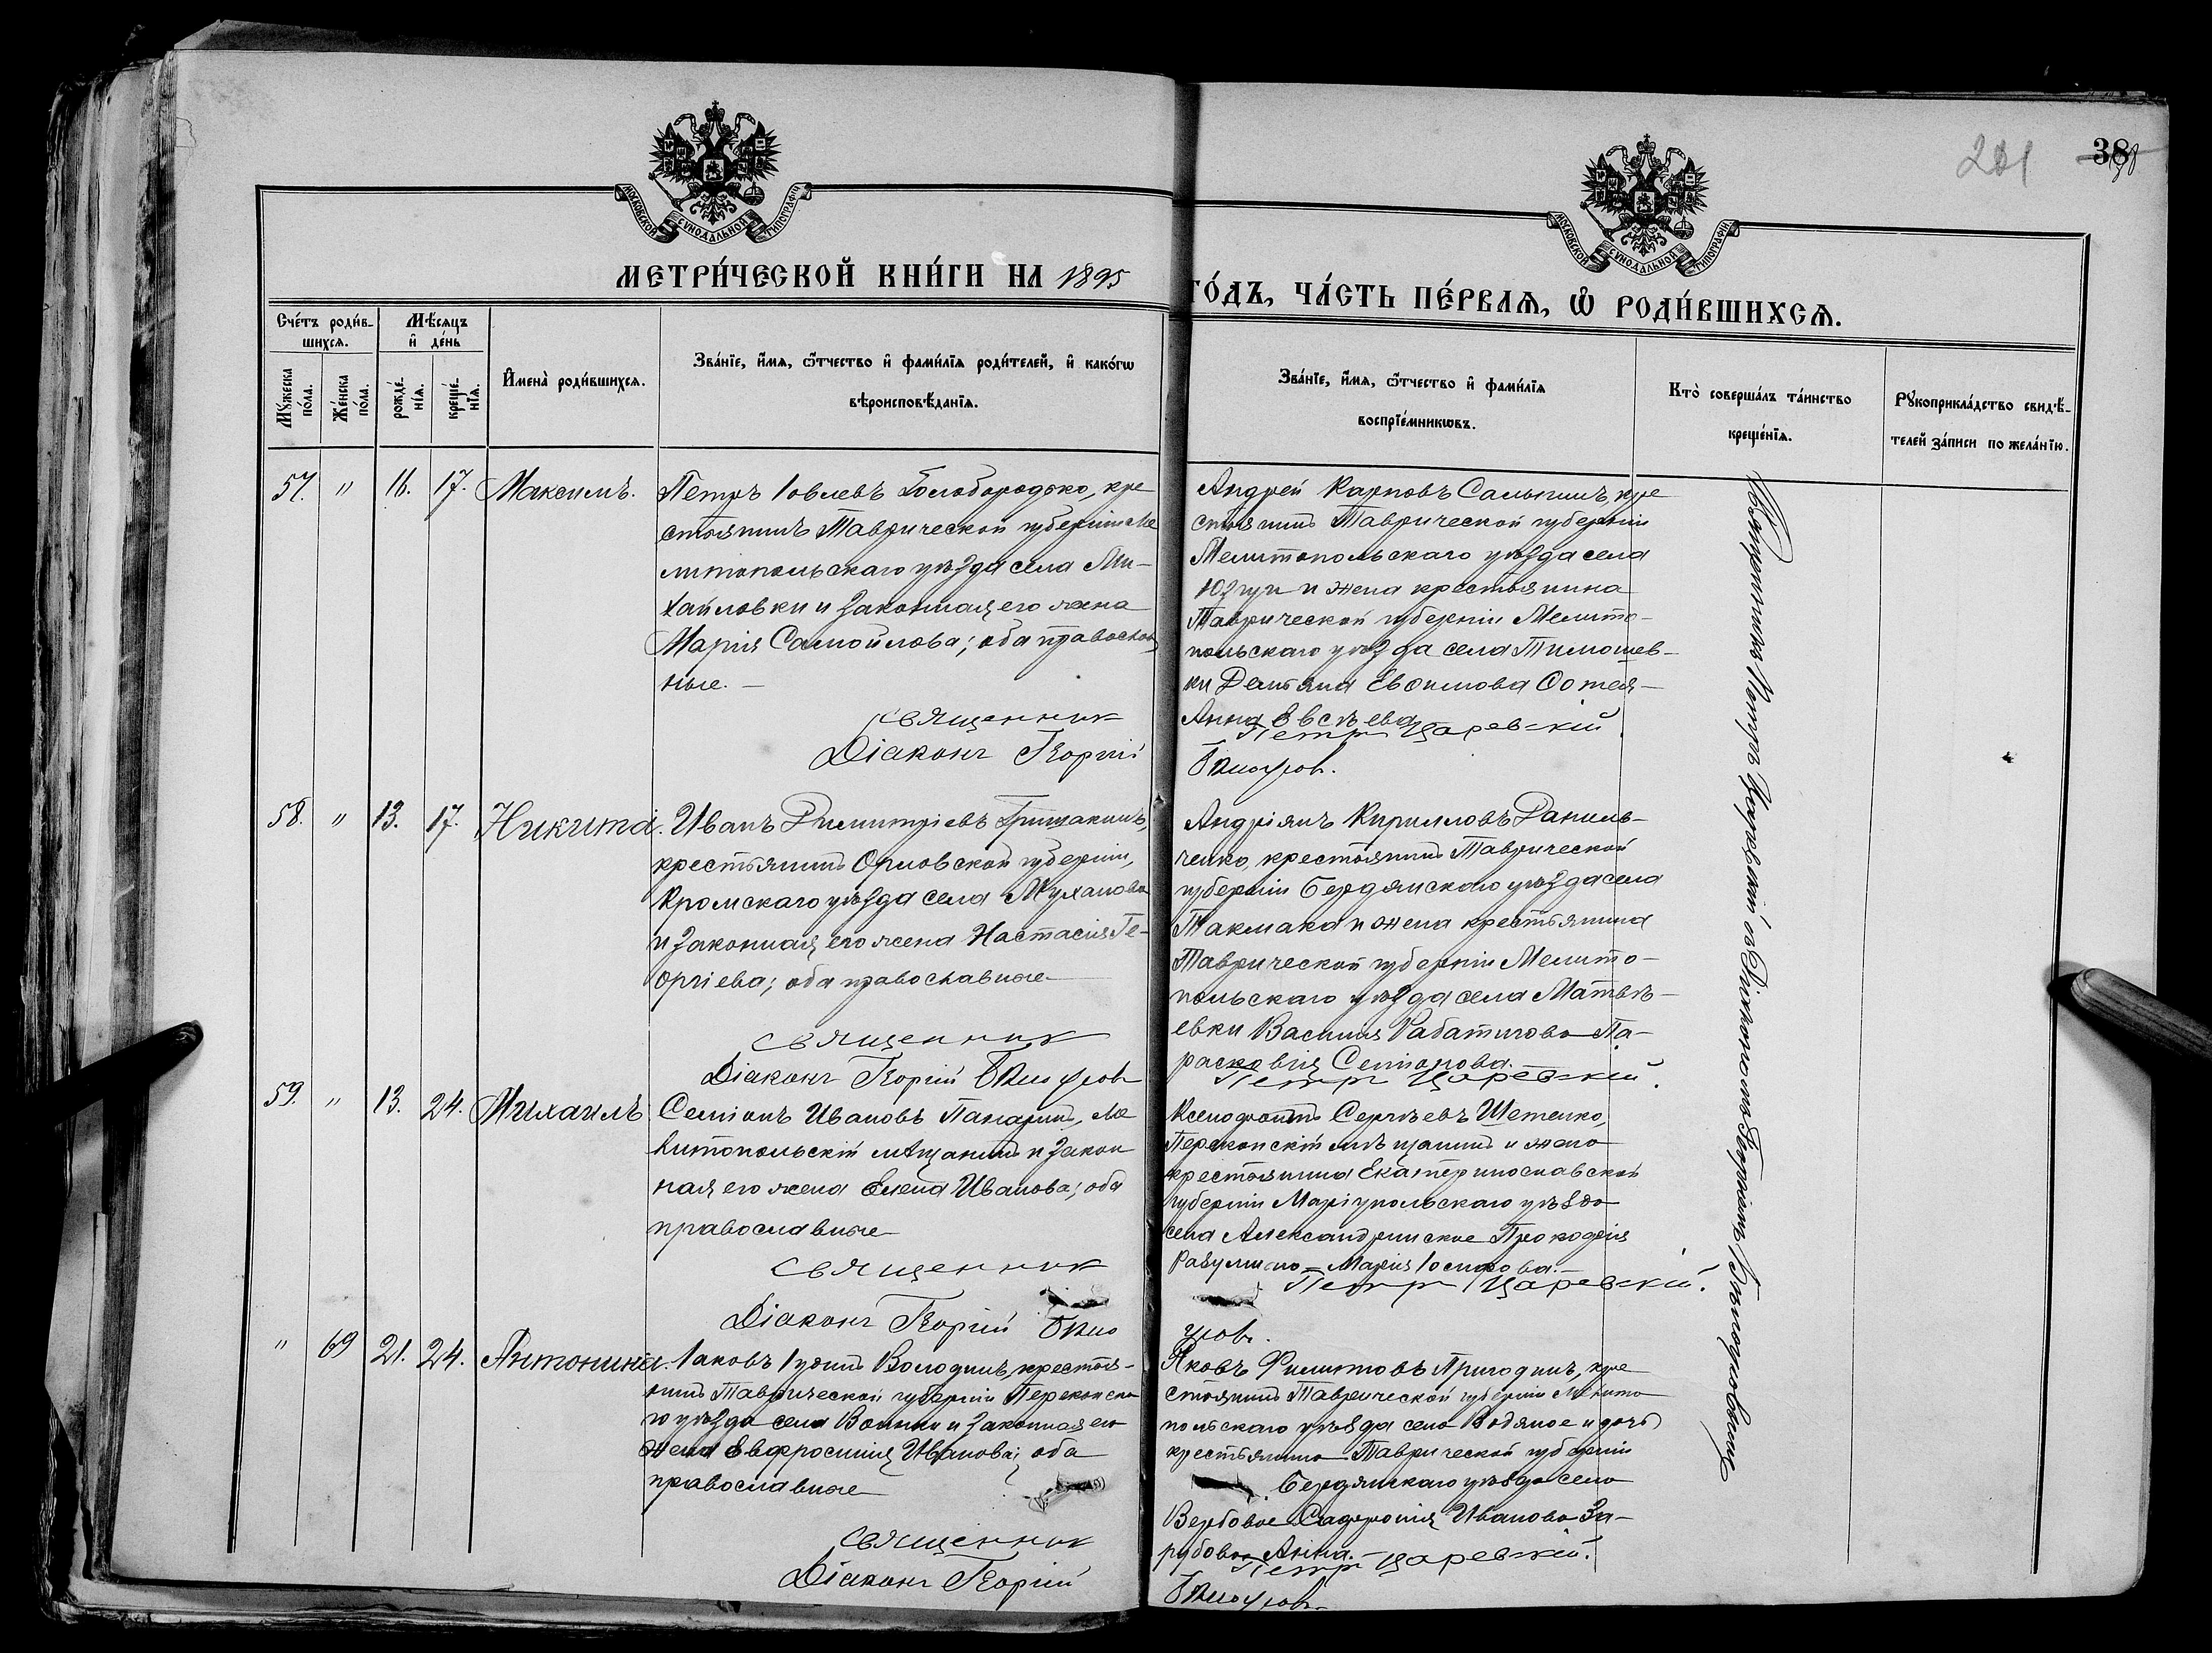 201
38
МОСКОВСКОЙ СѴНОДАЛЬНОЙ ТИПОГРАФІИ
МОСКОВСКОЙ СѴНОДАЛЬНОЙ ТИПОГРАФІИ
МЕТРИ́ЧЕСКОЙ КНИ́ГИ НА 1895
ГО́ДЪ, ЧА́СТЬ ПЕ́РВАѦ, Ѽ РОДИ́ВШИХСѦ.
Сче́тъ роди́в-
шихсѧ.
Мꙋ́жеска по́ла.
Же́нска по́ла.
Мѣ́сѧцъ
и де́нь
рожде́нїѧ.
креще́нїѧ.
Имена̀ роди́вшихсѧ.
Зва́нїе, и́мѧ, ѻ́тчество и фами́лїѧ роди́телей, и како́гѡ
вѣроисповѣ́данїѧ.
Зва́нїе, и́мѧ, ѻ́тчество и фами́лїѧ
воспрїе́мникѡвъ.
Кто̀ соверша́лъ та́инство
креще́нїѧ.
Рꙋкоприкла́дство свидѣ́-
телей за́писи по жела́нїю.
57. " 16. 17. Максимъ.
Петръ Іовлевъ Голобородько, кре
стьянинъ Таврической губерніи Ме
литопольскаго уѣзда села Ми-
хайловки и законная его жена
Марія Самойлова; оба православ
ные.
Священникъ
Діаконъ Георгій
Андрей Карповъ, кре
стьянинъ Таврической губерніи
Мелитопольскаго уѣзда села
и жена крестьянина
Таврической губерніи Мелито-
польскаго уѣзда села Тимошев-
ки Даміана Евфимова
Анна Евсѣева
Петръ Царевскій
58. " 13. 17. Никита.
Иванъ Димитріевъ Гришакинъ,
крестьянинъ Орловской губерніи,
Кромскаго уѣзда села
и законная его жена Настасія Ге-
оргіева; оба православные
Священникъ
Діаконъ Георгій
Андріянъ Кирилловъ Даниль-
ченко, крестьянинъ Таврической
губерніи Бердянскаго уѣзда села
Такмака и жена крестьянина
Таврической губерніи Мелито-
польскаго уѣзда села Матвѣ-
евки Василія Па-
раскевія Семіонова.
Петръ Царевскій.
59. " 13. 24. Михаилъ
Семіонъ Ивановъ Панаринъ, Ме
литопольскій мѣщанинъ и закон
ная его жена Елена Иванова; оба
православные
Священникъ
Діаконъ Георгій
Ксенофонтъ Сергѣевъ Шетенко,
Перекопскій мѣщанинъ и жена
крестьянина Екатеринославской
губерніи Маріупольскаго уѣзда
села Прокофія
Марія Іосифова.
Петръ Царевскій.
" 69 21. 24. Антонина.
Іаковъ Іудинъ Володинъ, крестья-
нинъ Таврической губерніи Перекопска
го уѣзда села Воинки и законная его
жена Евфросинія Иванова; оба
православные
Священникъ
Діаконъ Георгій
Яковъ Филиповъ Пригодинъ, кре
стьянинъ Таврической губерніи Мелито
польскаго уѣзда села Водяное и дочь
крестьянина Таврической губерніи
Бердянскаго уѣзда села
Вербовое Сафронія Иванова За-
рубова Анна.
Петръ Царевскій.
Священникъ Петръ Царевскій съ Діакономъ Георгіемъ